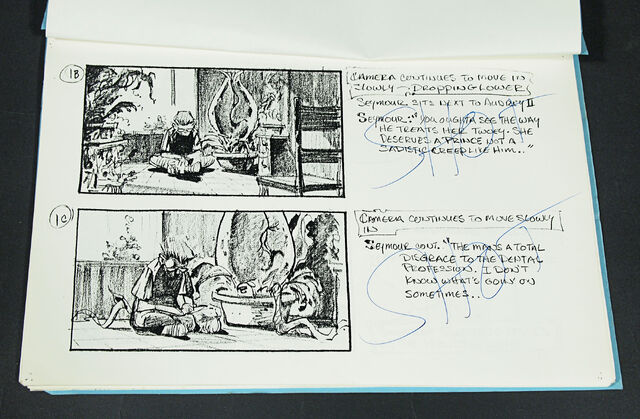 1B
CAMERA CONTINUES TO MOVE IN
SLOWLY - DROPPING LOWER
SEYMOUR SITS NEXT TO AUDREY II
SEYMOUR: "YOU OUGHTA SEE THE WAY
HE TREATS HER TWOEY. SHE
DESERVES A PRINCE NOT A
SADISTIC CREEP LIKE HIM..."
SHOT
1C
CAMERA CONTINUES TO MOVE SLOWLY
IN
SEYMOUR CONT. "THE MANS A TOTAL
DISGRACE TO THE DENTAL
PROFESSION. I DON'T
KNOW WHAT'S GOIN' ON
SOMETIMES..
SHOT